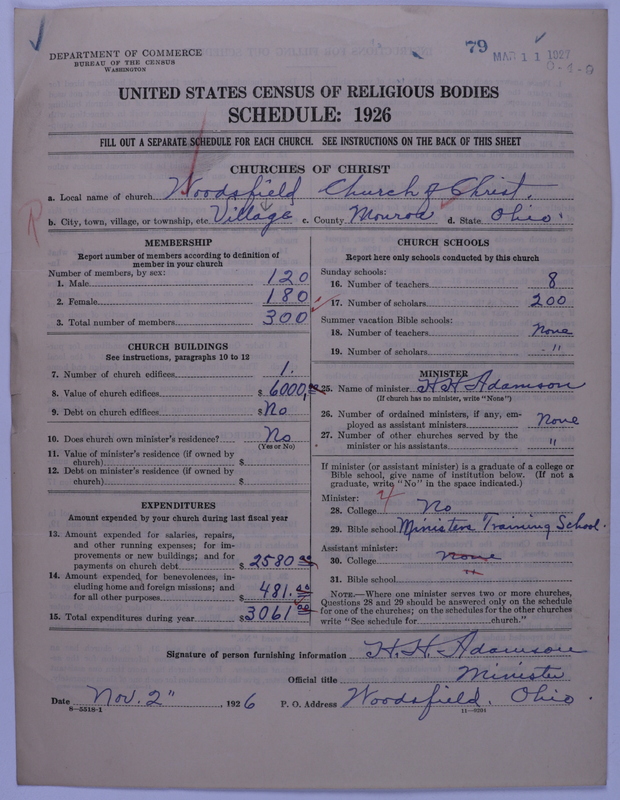 79
MAR 11 1927
DEPARTMENT OF COMMERCE
BUREAU OF THE CENSUS
WASHINGTON
UNITED STATES CENSUS OF RELIGIOUS BODIES
SCHEDULE: 1926
FILL OUT A SEPARATE SCHEDULE FOR EACH CHURCH. SEE INSTRUCTIONS ON THE BACK OF THIS SHEET
CHURCHES OF CHRIST
a. Local name of church Woodsfield Church of Christ.
b. City, town, village, or township, etc Village c. County Monroe d. State Ohio
MEMBERSHIP
Report number of members according to definition of
member in your church
Number of members, by sex:
1. Male 120
2. Female 180
3. Total number of members 300
CHURCH BUILDINGS
See instructions, paragraphs 10 to 12
7. Number of church edifices 1.
8. Value of church edifices $ 6000.00
9. Debt on church edifices $ No
10. Does church own minister's residence? No
(Yes or No)
11. Value of minister's residence (if owned by
church) $
12. Debt on minister's residence (if owned by
church) $
EXPENDITURES
Amount expended by your church during last fiscal year
13. Amount expended for salaries, repairs,
and other running expenses; for im-
provements or new buildings; and for
payments on church debt $ 2580.00
14. Amount expended for benevolences, in-
cluding home and foreign missions; and
for all other purposes $ 481.00
15. Total expenditures during year $ 3061.00
CHURCH SCHOOLS
Report here only schools conducted by this church
Sunday schools:
16. Number of teachers 8
17. Number of scholars 200
Summer vacation Bible schools:
18. Number of teachers None
19. Number of scholars "
MINISTER
25. Name of minister H H Adamson
(If church has no minister, write "None")
26. Number of ordained ministers, if any, em-
ployed as assistant ministers None
27. Number of other churches served by the
minister or his assistants "
If minister (or assistant minister) is a graduate of a college or
Bible school, give name of institution below. (If not a
graduate, write "No" in the space indicated.)
Minister:
28. College No
29. Bible school Ministers Training School.
Assistant minister:
30. College none
31. Bible school "
NOTE.—Where one minister serves two or more churches,
Questions 28 and 29 should be answered only on the schedule
for one of the churches; on the schedules for the other churches
write "See schedule for church."
Signature of person furnishing information H. H. Adamson
Official title Minister
Date Nov. 2" , 1926 P. O. Address Woodsfield. Ohio.
8—5518-1